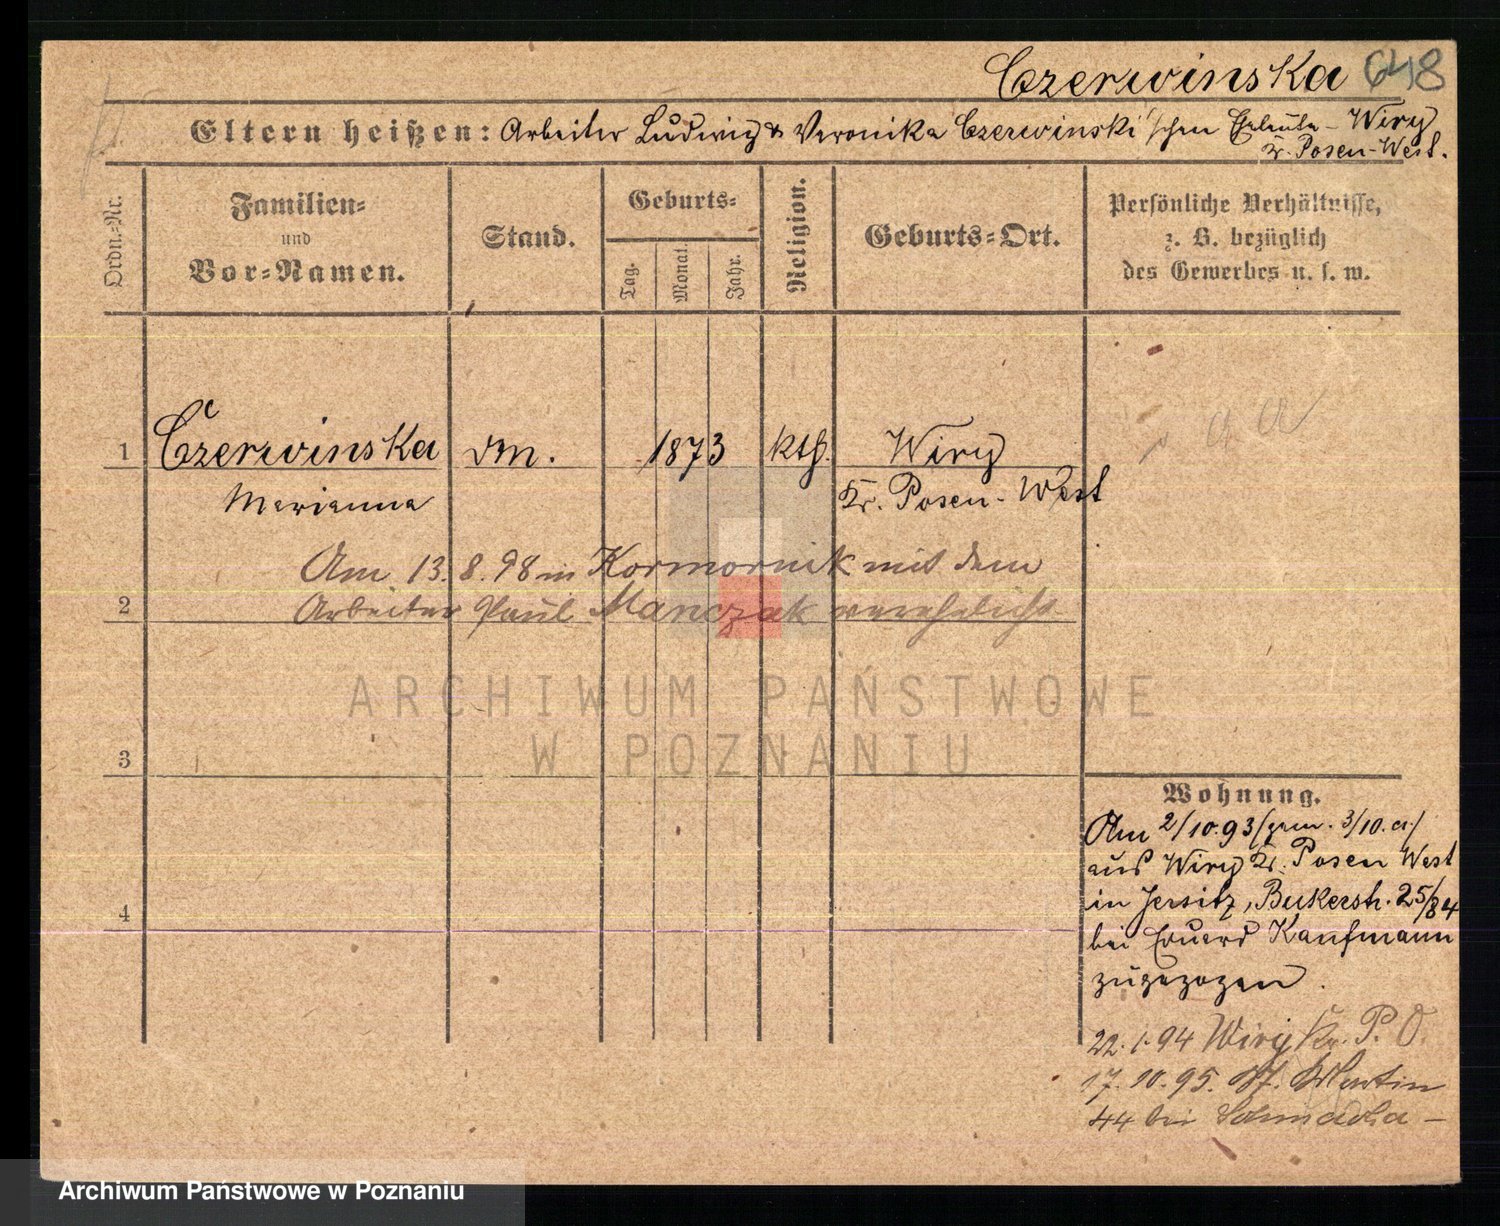 Czerwinska 648
Eltern heißen: Arbeiter Ludwig & Veronika Czerwinski'schen Eheleute - Wiry
Kr. Posen-West.
Ordn.-Nr.
Familien-
und
Vor-Namen.
Stand.
Geburts-
Tag.
Monat.
Jahr.
Religion.
Geburts-Ort.
Persönliche Verhältnisse,
z. B. bezüglich
des Gewerbes u. s. w.
1 Czerwinska dm. 1873 kth. Wiry
Marianna Kr. Posen-West
Am 13.8.98 in Kormornik mit dem
2 Arbeiter Paul Manczak verehelicht
ARCHIWUM PAŃSTWOWE
W POZNANIU
3
Wohnung.
Am 2/10.93 /gem. 3/10. a/
aus Wiry Kr. Posen West
in Jersitz, Bukerstr. 25/84
4
bei Eduard Kaufmann
zugezogen.
22.1.94 Wiry Kr. P. O.
17.10.95. St. Martin
44 bei
Archiwum Państwowe w Poznaniu